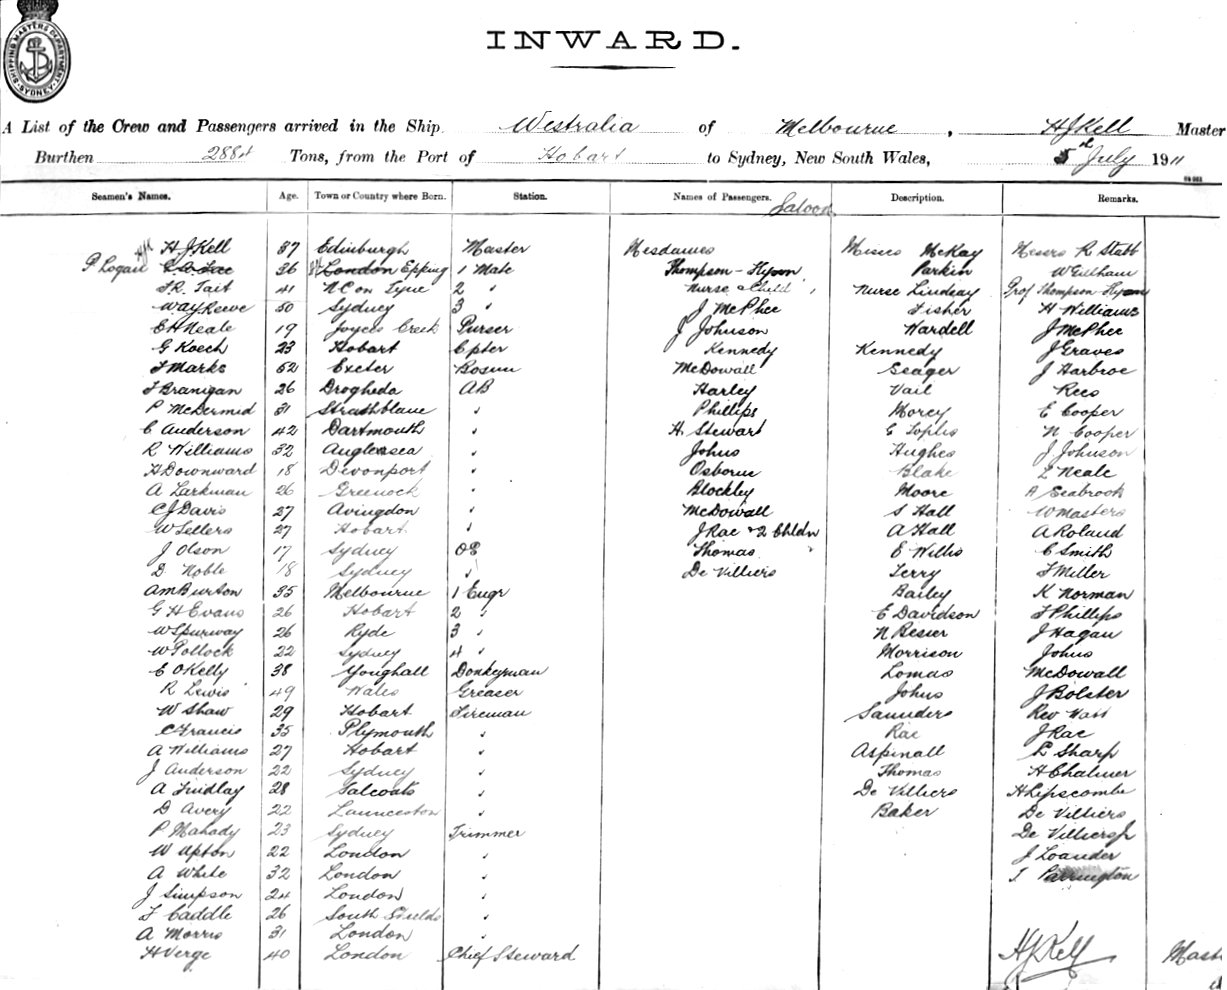 SHIPPING MASTERS DEPARTMENT SYDNEY
INWARD.
A List of the Crew and Passengers arrived in the Ship Westralia of Melbourne, HJKell Master
Burthen 2884 Tons, from the Port of Hobart to Sydney, New South Wales, 5th July 1911
Seamen's Names. Age. Town or Country where Born. Station. Names of Passengers. Description. Remarks.
Saloon
H J Kell 37 Edinburgh Master Mesdames Misses McKay Messrs R Stabb
P Logan 36 London Epping 1 Mate Thompson - Hyson Parkin W Gillham
41 NC on Tyne 2 " Nurse & Child Nurse Lindsay Prof Thompson Hyson
Way Reeve 50 Sydney 3 " J McPhee Fisher H Williams
E H Neale 19 Joyces Creek Purser J Johnson Wardell J McPhee
G Koech 23 Hobart Cpter Kennedy Kennedy J Graves
F Marks 52 Exeter Bosun McDowall Seager J Harbroe
F Branigan 26 Drogheda AB Harley Vail Rees
P McDermid 31 Strathblane " Phillips Morey E Cooper
C Anderson 42 Dartmouth " H Stewart E Loplis N Cooper
R Williams 32 Anglesea " Johns Hughes J Johnson
H Downward 18 Devonport " Osborne Blake L Neale
A Larkman 26 Greenock " Blockley Moore A Seabrook
C J Davis 27 Avingdon " McDowall S Hall W Masters
W Sellers 27 Hobart " J Rae & 2 Chldn A Hall A Roland
J Olson 17 Sydney OS Thomas E Willis C Smith
D Noble 18 Sydney " De Villiers Terry F Miller
A M Burton 35 Melbourne 1 Engr Bailey K Norman
G H Evans 26 Hobart 2 " E Davidson F Phillips
W Spurway 26 Ryde 3 " N Besier J Hagan
W Pollock 22 Sydney 4 " Morrison Johns
E O'Kelly 38 Youghall Donkeyman Lomas McDowall
R Lewis 49 Wales Greaser Johns J Bolster
W Shaw 29 Hobart Fireman Saunders Rev Hart
C Francis 35 Plymouth " Rae J Rae
A Williams 27 Hobart " Aspinall L Sharp
J Anderson 22 Sydney " Thomas H Chalmer
A Findlay 28 Salcoats " De Villiers H Lipscombe
D Avery 22 Launceston " Baker De Villiers
P Mahady 23 Sydney Trimmer De Villiers Jr
W Upton 22 London " J Loander
A White 32 London " Parrington
J Simpson 24 London "
F Caddle 26 South Shields "
A Morris 31 London "
H Verge 40 London Chief Steward HJKell Mast